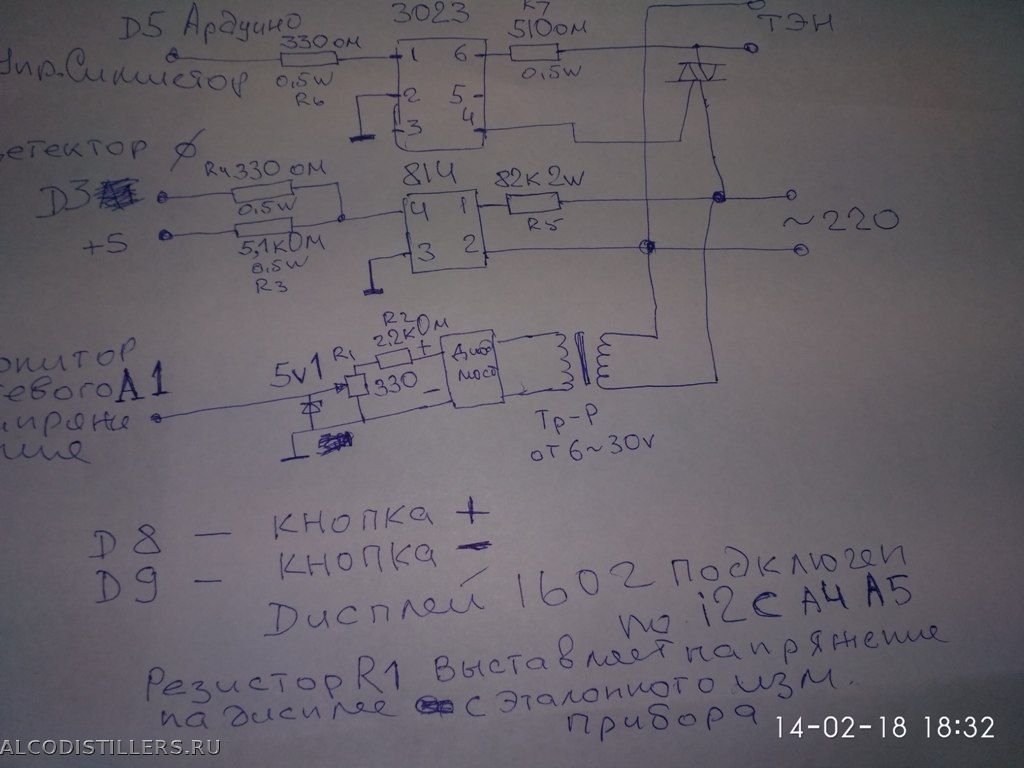 D5 Ардуино
3023
R7
510ом
0,5w
ТЭН
Упр.Симистор
330 ом
0,5w
R6
1
2
3
6
5
4
детектор ф
D3
+5
R4 330 ом
0,5w
5,1кОм
0,5w
R3
814
4
3
1
2
82к 2w
R5
~220
монитор
сетевого A1
напряже
ния
5v1
R1
330
R2
22кОм
+
−
Диод
мост
Тр-р
от 6~30v
D8 — кнопка +
D9 — кнопка −
Дисплей 1602 подключен
по i2c A4 A5
Резистор R1 выставляет напряжение
на дисплее с эталонного изм.
прибора
14-02-18 18:32
ALCODISTILLERS.RU